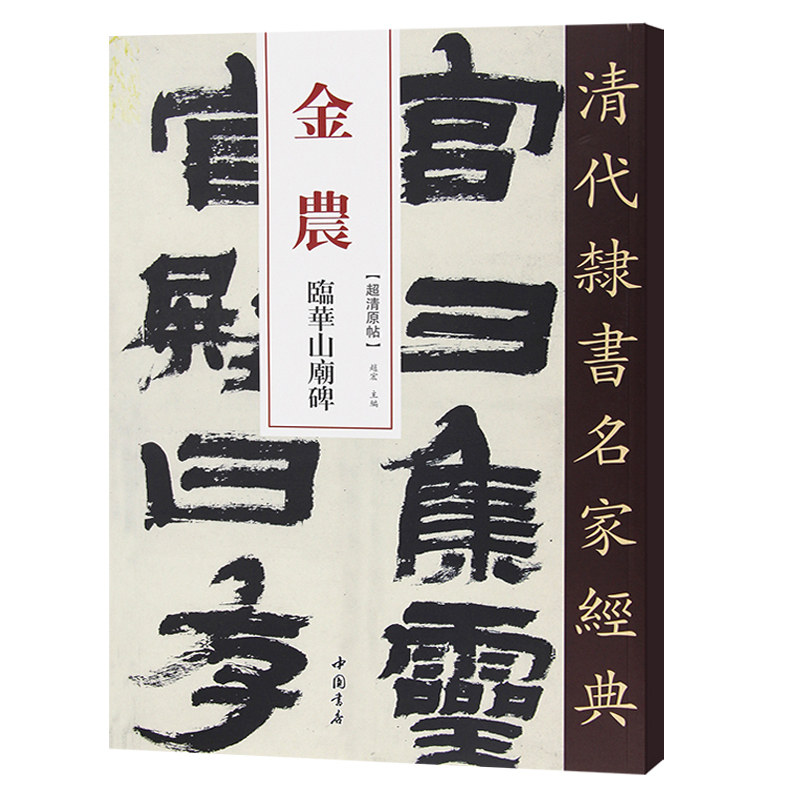 清代隸書名家經典
金農
臨華山廟碑
【超清原帖】
趙宏 主編
宮曰集靈
宮殿曰存
中国書店